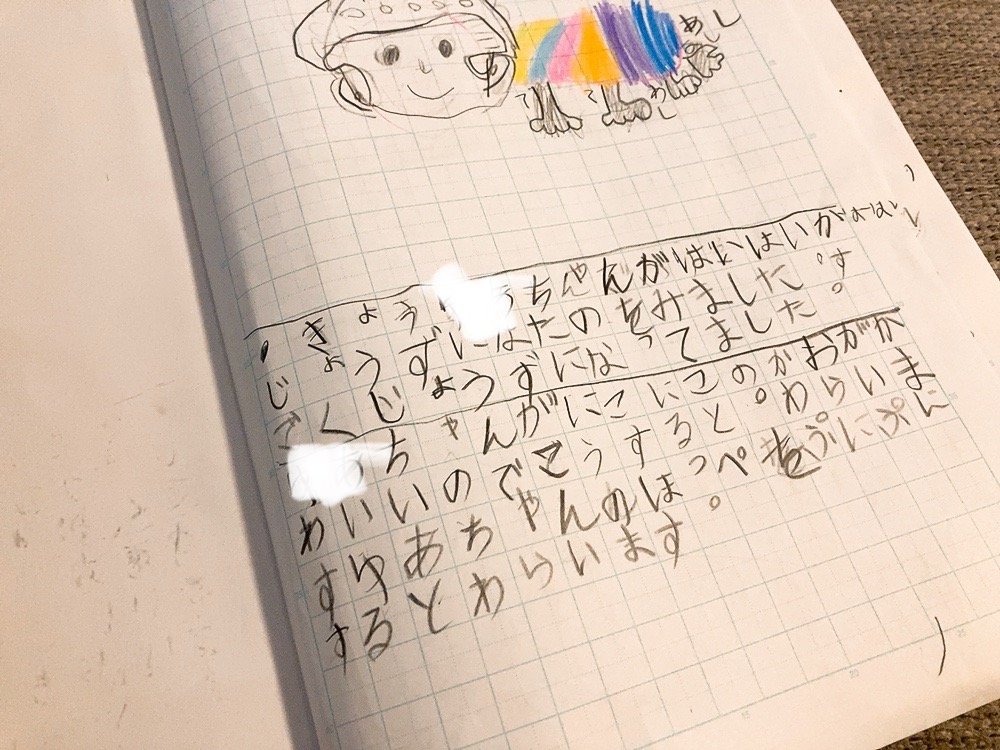 あし
て て あし
きょう ちゃんがはいはいが
じょうずになたのをみました。す
ごくじょうずになってました。
ちゃんがにこにこのかおがか
わいいのでこうすると。わらいま
すゆあちゃんのほっぺをぷにぷに
するとわらいます。